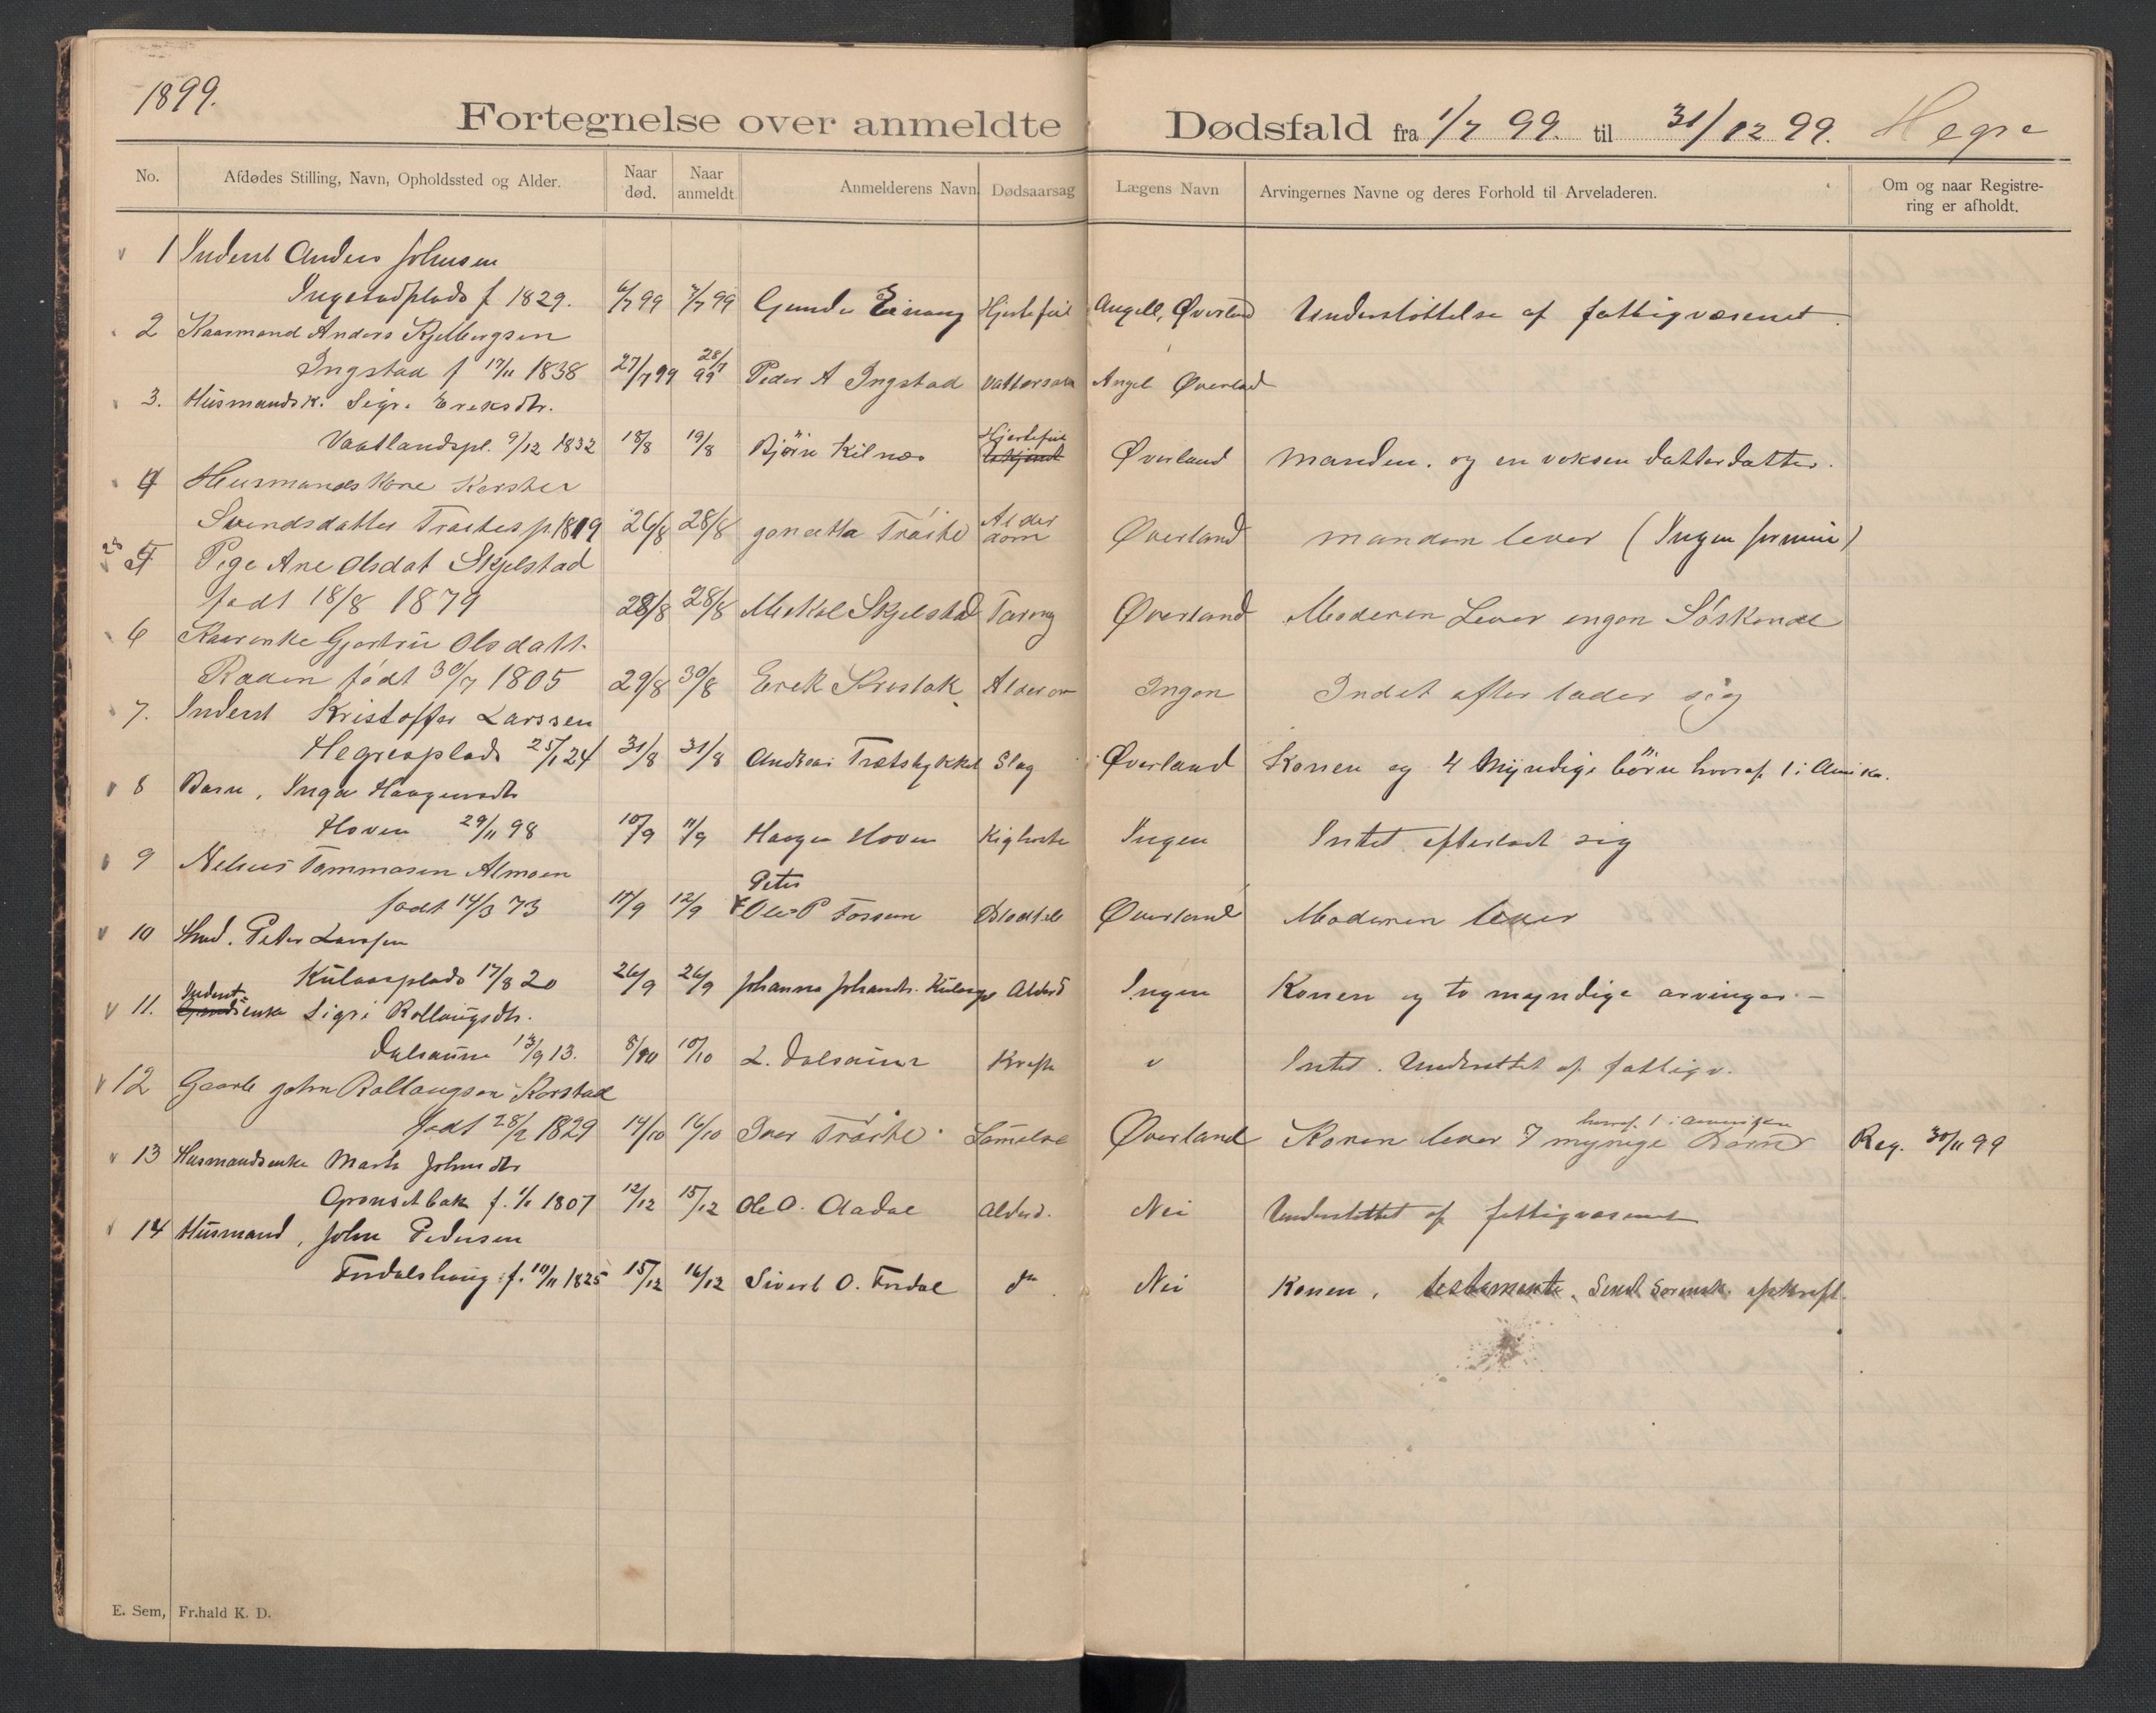 1899.
Fortegnelse over anmeldte Dødsfald fra 1/7 99. til 31/12 99. Hegre
No. Afdødes Stilling, Navn, Opholdssted og Alder. Naar død. Naar anmeldt Anmelderens Navn Dødsaarsag Lægens Navn Arvingernes Navne og deres Forhold til Arveladeren. Om og naar Registrering er afholdt.
1 Inderst Anders Johnsen
Ingstadplads f 1829. 6/7 99 7/7 99 Gunder Hjertefeil Angell, Øverland Understøttelse af fattigvæsenet.
2 Kaarmand Anders Kjelbergsen
Ingstad f 17/11 1838 27/7 99 28/7 99 Peder A Ingstad Vattersot Angel Øverland
3. Husmandsk. Sigr. Ereksdtr.
Vaatlandspl. 9/12 1832 18/8 19/8 Bjørn Kilnæs Hjertefeil Øverland Manden. og en voksen datterdatter.
4 Husmands Kone Kersten
Svendsdatter Træitesp. 1819 26/8 28/8 Træite Alderdom Øverland manden lever (Ingen formue)
5 Pige Ane Olsdat Skjelstad
født 18/8 1879 28/8 28/8 Mekal Skjelstad Tæring Øverland Moderen Lever engen Søskende
6 Kaarenke Gjertru Olsdatt.
Raaen født 30/7 1805 29/8 30/8 Erek Alderdom Ingen Indet efter lader sig
7. Inderst Kristoffer Larssen
Hegresplads 25/1 24 31/8 31/8 Andreas Trætstykket Slag Øverland Konen og 4 Myndige børn hvoraf 1 i Amerika.
8 Barn, Inga Haagensdtr
Hoven 29/11 98 10/9 11/9 Haagen Hoven Kighoste Ingen Intet efterladt sig
9 Nelius Tommasen Almoen
Peter
født 14/3 73 11/9 12/9 Ole P Fossum Øverland Moderen lever
10 Hmd. Peter Larssen
Kulaasplads 17/8 20 26/9 26/9 Johanna Johansdtr. Kulaas Alderd Ingen Konen og to myndige arvinger. –
Inderst
11. enke Sigri Rollaugsdtr.
Dalsaune 13/9 13. 8/10 10/10 L. Dalsaune Kræft " Intet. Understøttet af fattigv.
12 Gaarb John Rollaugsen Korstad
hvoraf 1 i Amerika
født 28/2 1829 14/10 16/10 Iver Træite Øverland Konen lever 7 mynige Børn Reg. 30/11 99
13 Husmandsenke Marte Johnsdtr
f. 1807 12/12 15/12 Ole O. Aadal Alderd. Nei Understøttet af fattigvæsenet
14 Husmand, John Pedersen
Fordalshaug f. 10/11 1825 15/12 16/12 Sivert O. Fordal do Nei Konen, testamente. Send Sorensk. afskrift.
E. Sem, Fr.hald K. D.